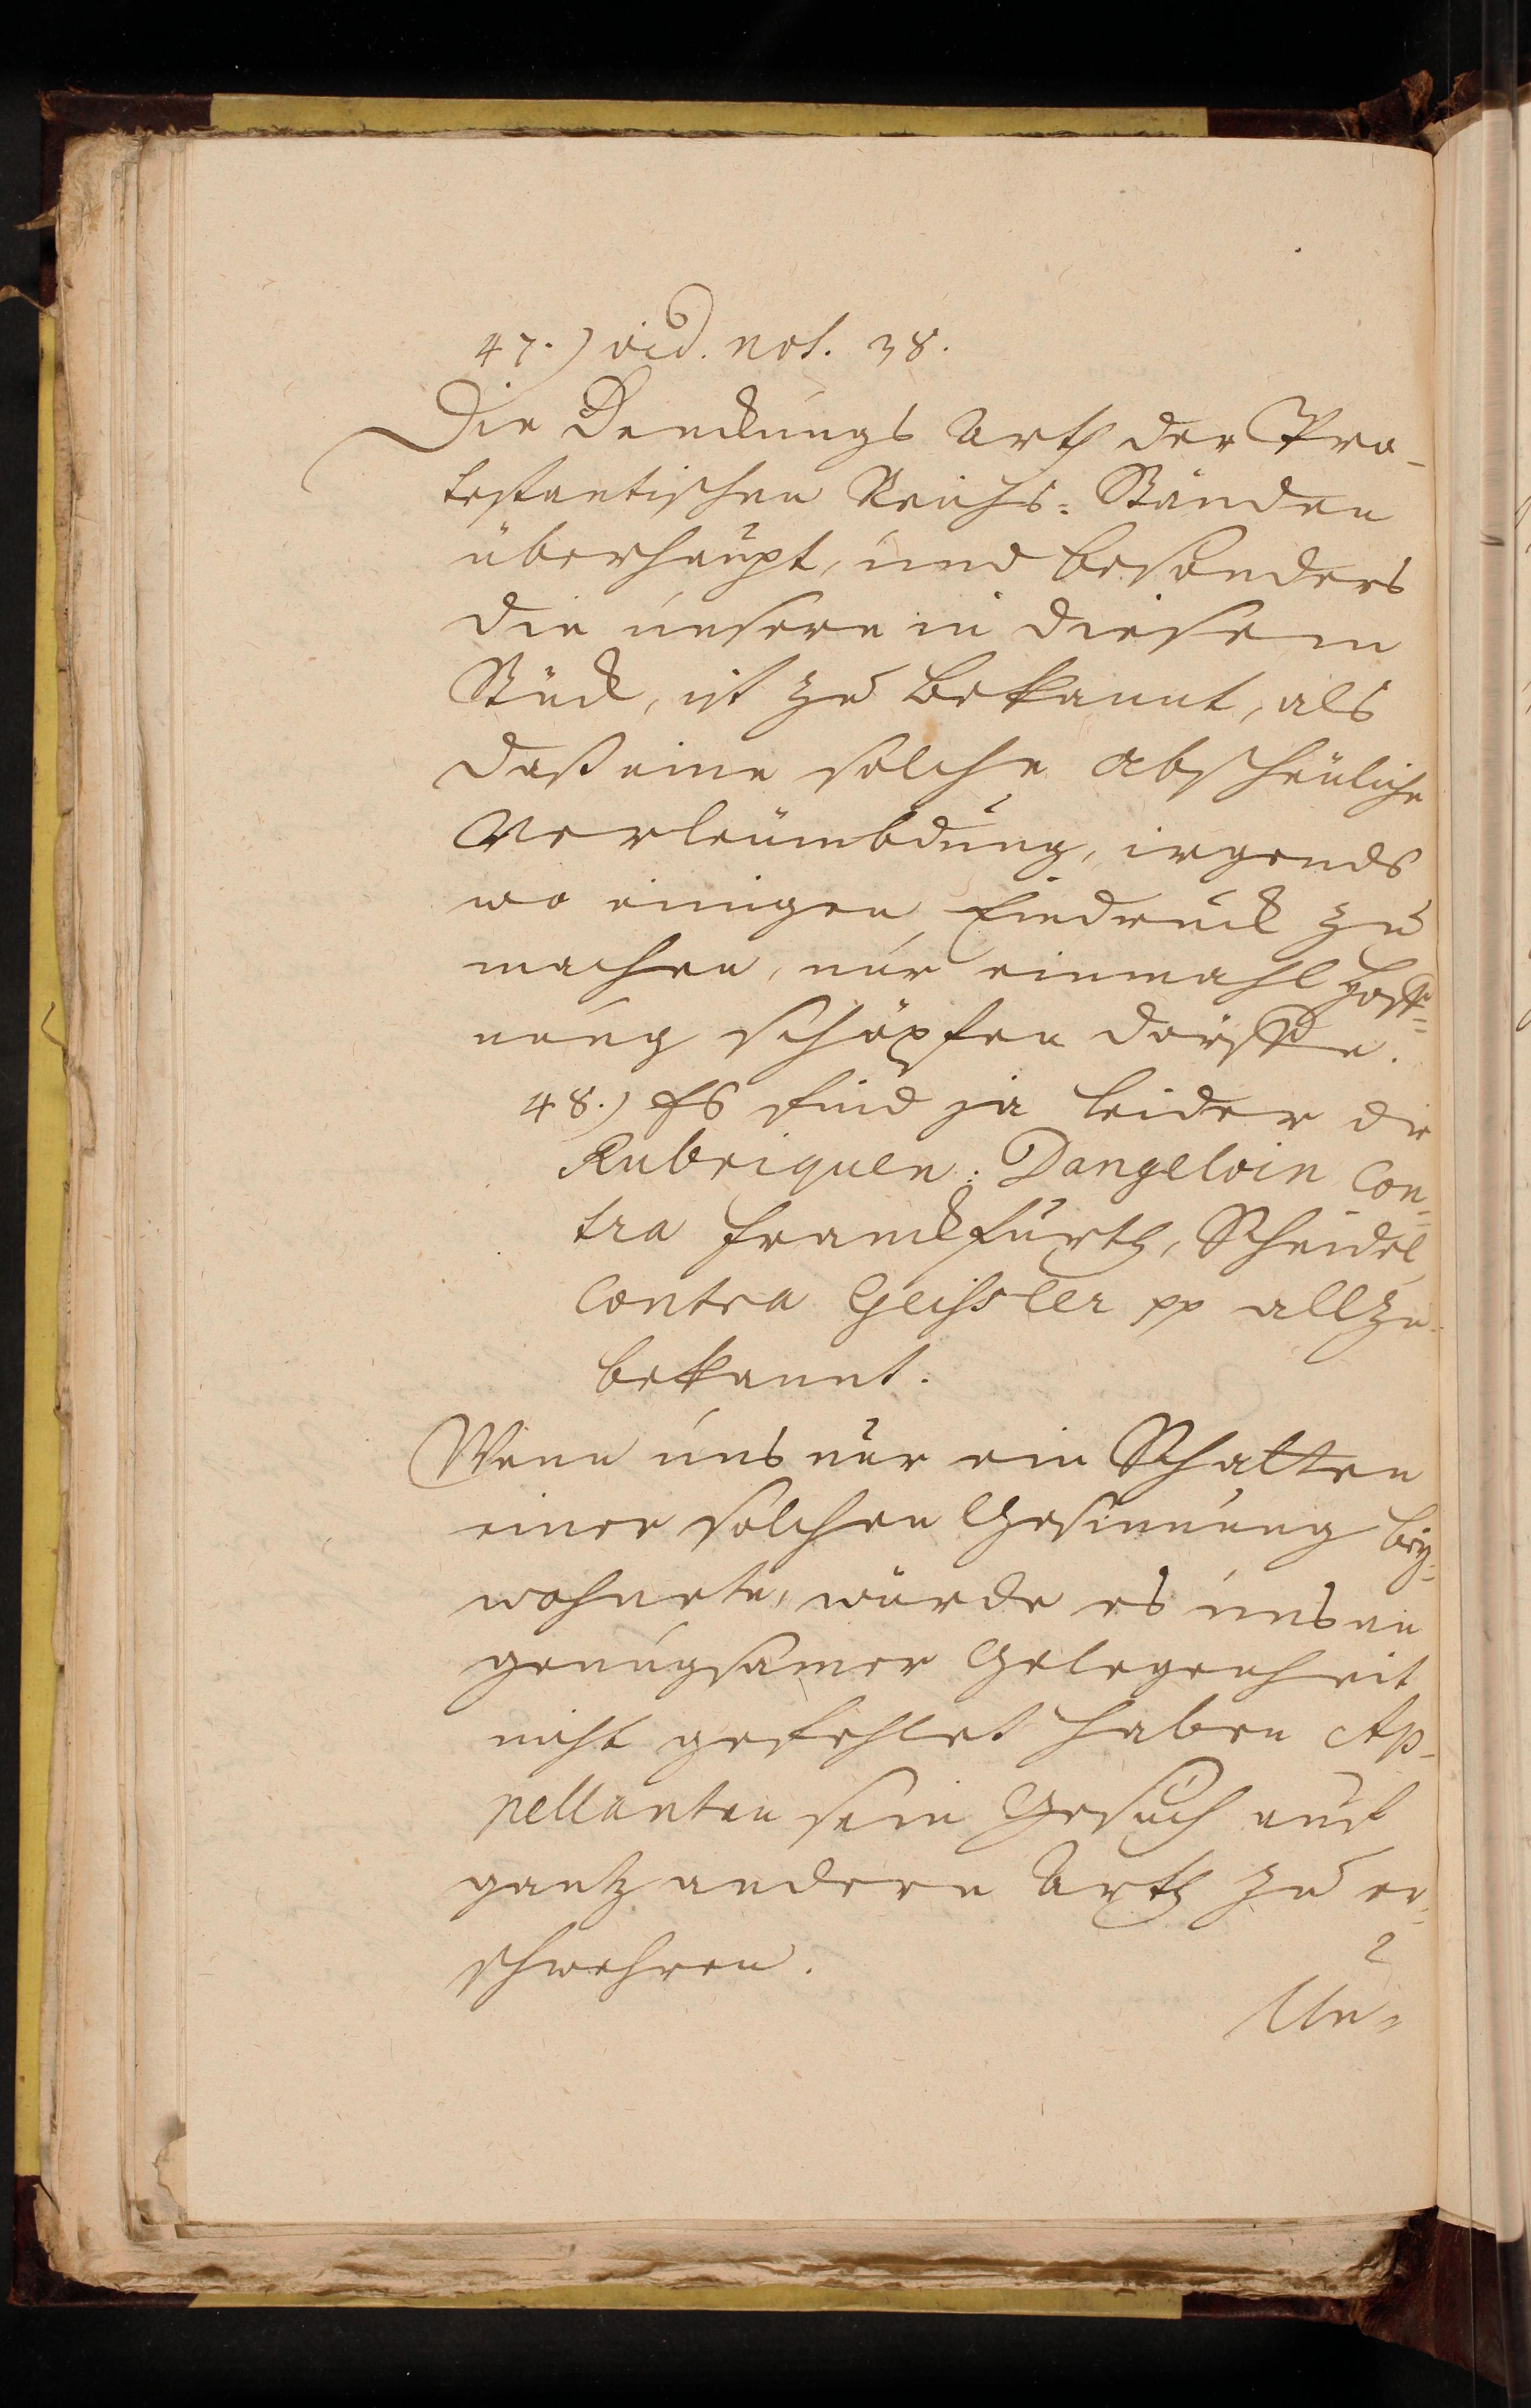 47.) vid. not. 38.
Die Denckungs Arth der Pro-
testantischen Reichs=Ständen
überhaupt, und besonders
die unsere in diesem
Stück, ist zu bekannt, als
daß eine solche abscheuliche
Verleumbdung, irgends
wo einigen Eindruck zu
machen, nur einmahl Hoff=
nung schöpfen dörffte.
48.) Es sind ja leider die
Rubriquen: Dangeloin Con=
tra Franckfurth, Scheidel
Contra Geissler pp allzu
bekannt.
Wenn uns nur ein Schatten
einer solchen Gesinnung bey=
wohnete, würde es uns an
genugsamer Gelegenheit
nicht gefehlet haben Ap-
pellanten sein Gesuch auf
gantz andere Arth zu er=
schwehren.
Un=